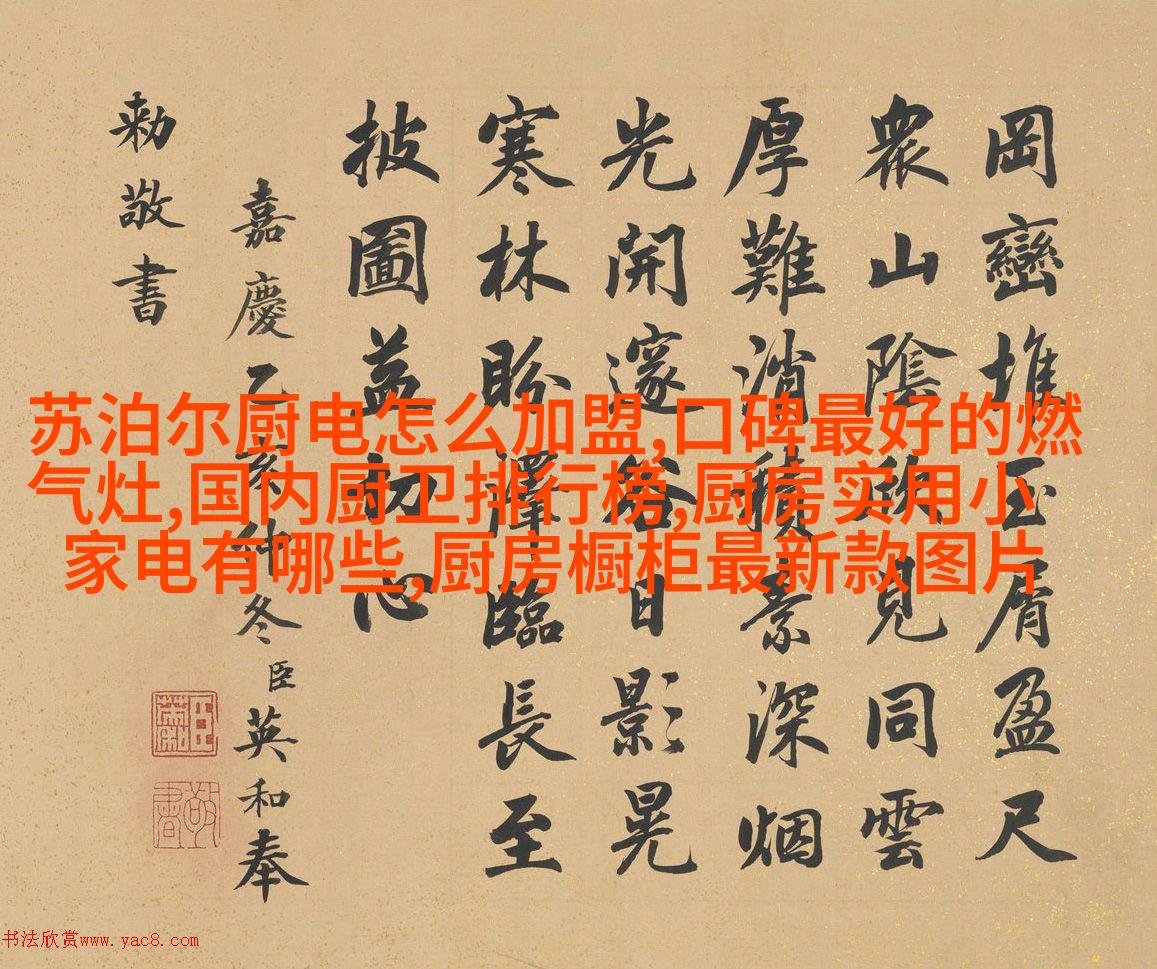 岡巒堆玉屑盈尺
衆山陰欣見同雲
厚難消積素深烟
光開邃谷日影晃
寒林盼澤臨長至
披圖益切心
嘉慶乙亥仲冬臣英和奉
勅敬書
敬書
苏泊尔厨电怎么加盟,口碑最好的燃
气灶,国内厨卫排行榜,厨房实用小
家电有哪些,厨房橱柜最新款图片
书法欣赏www.yac8.com